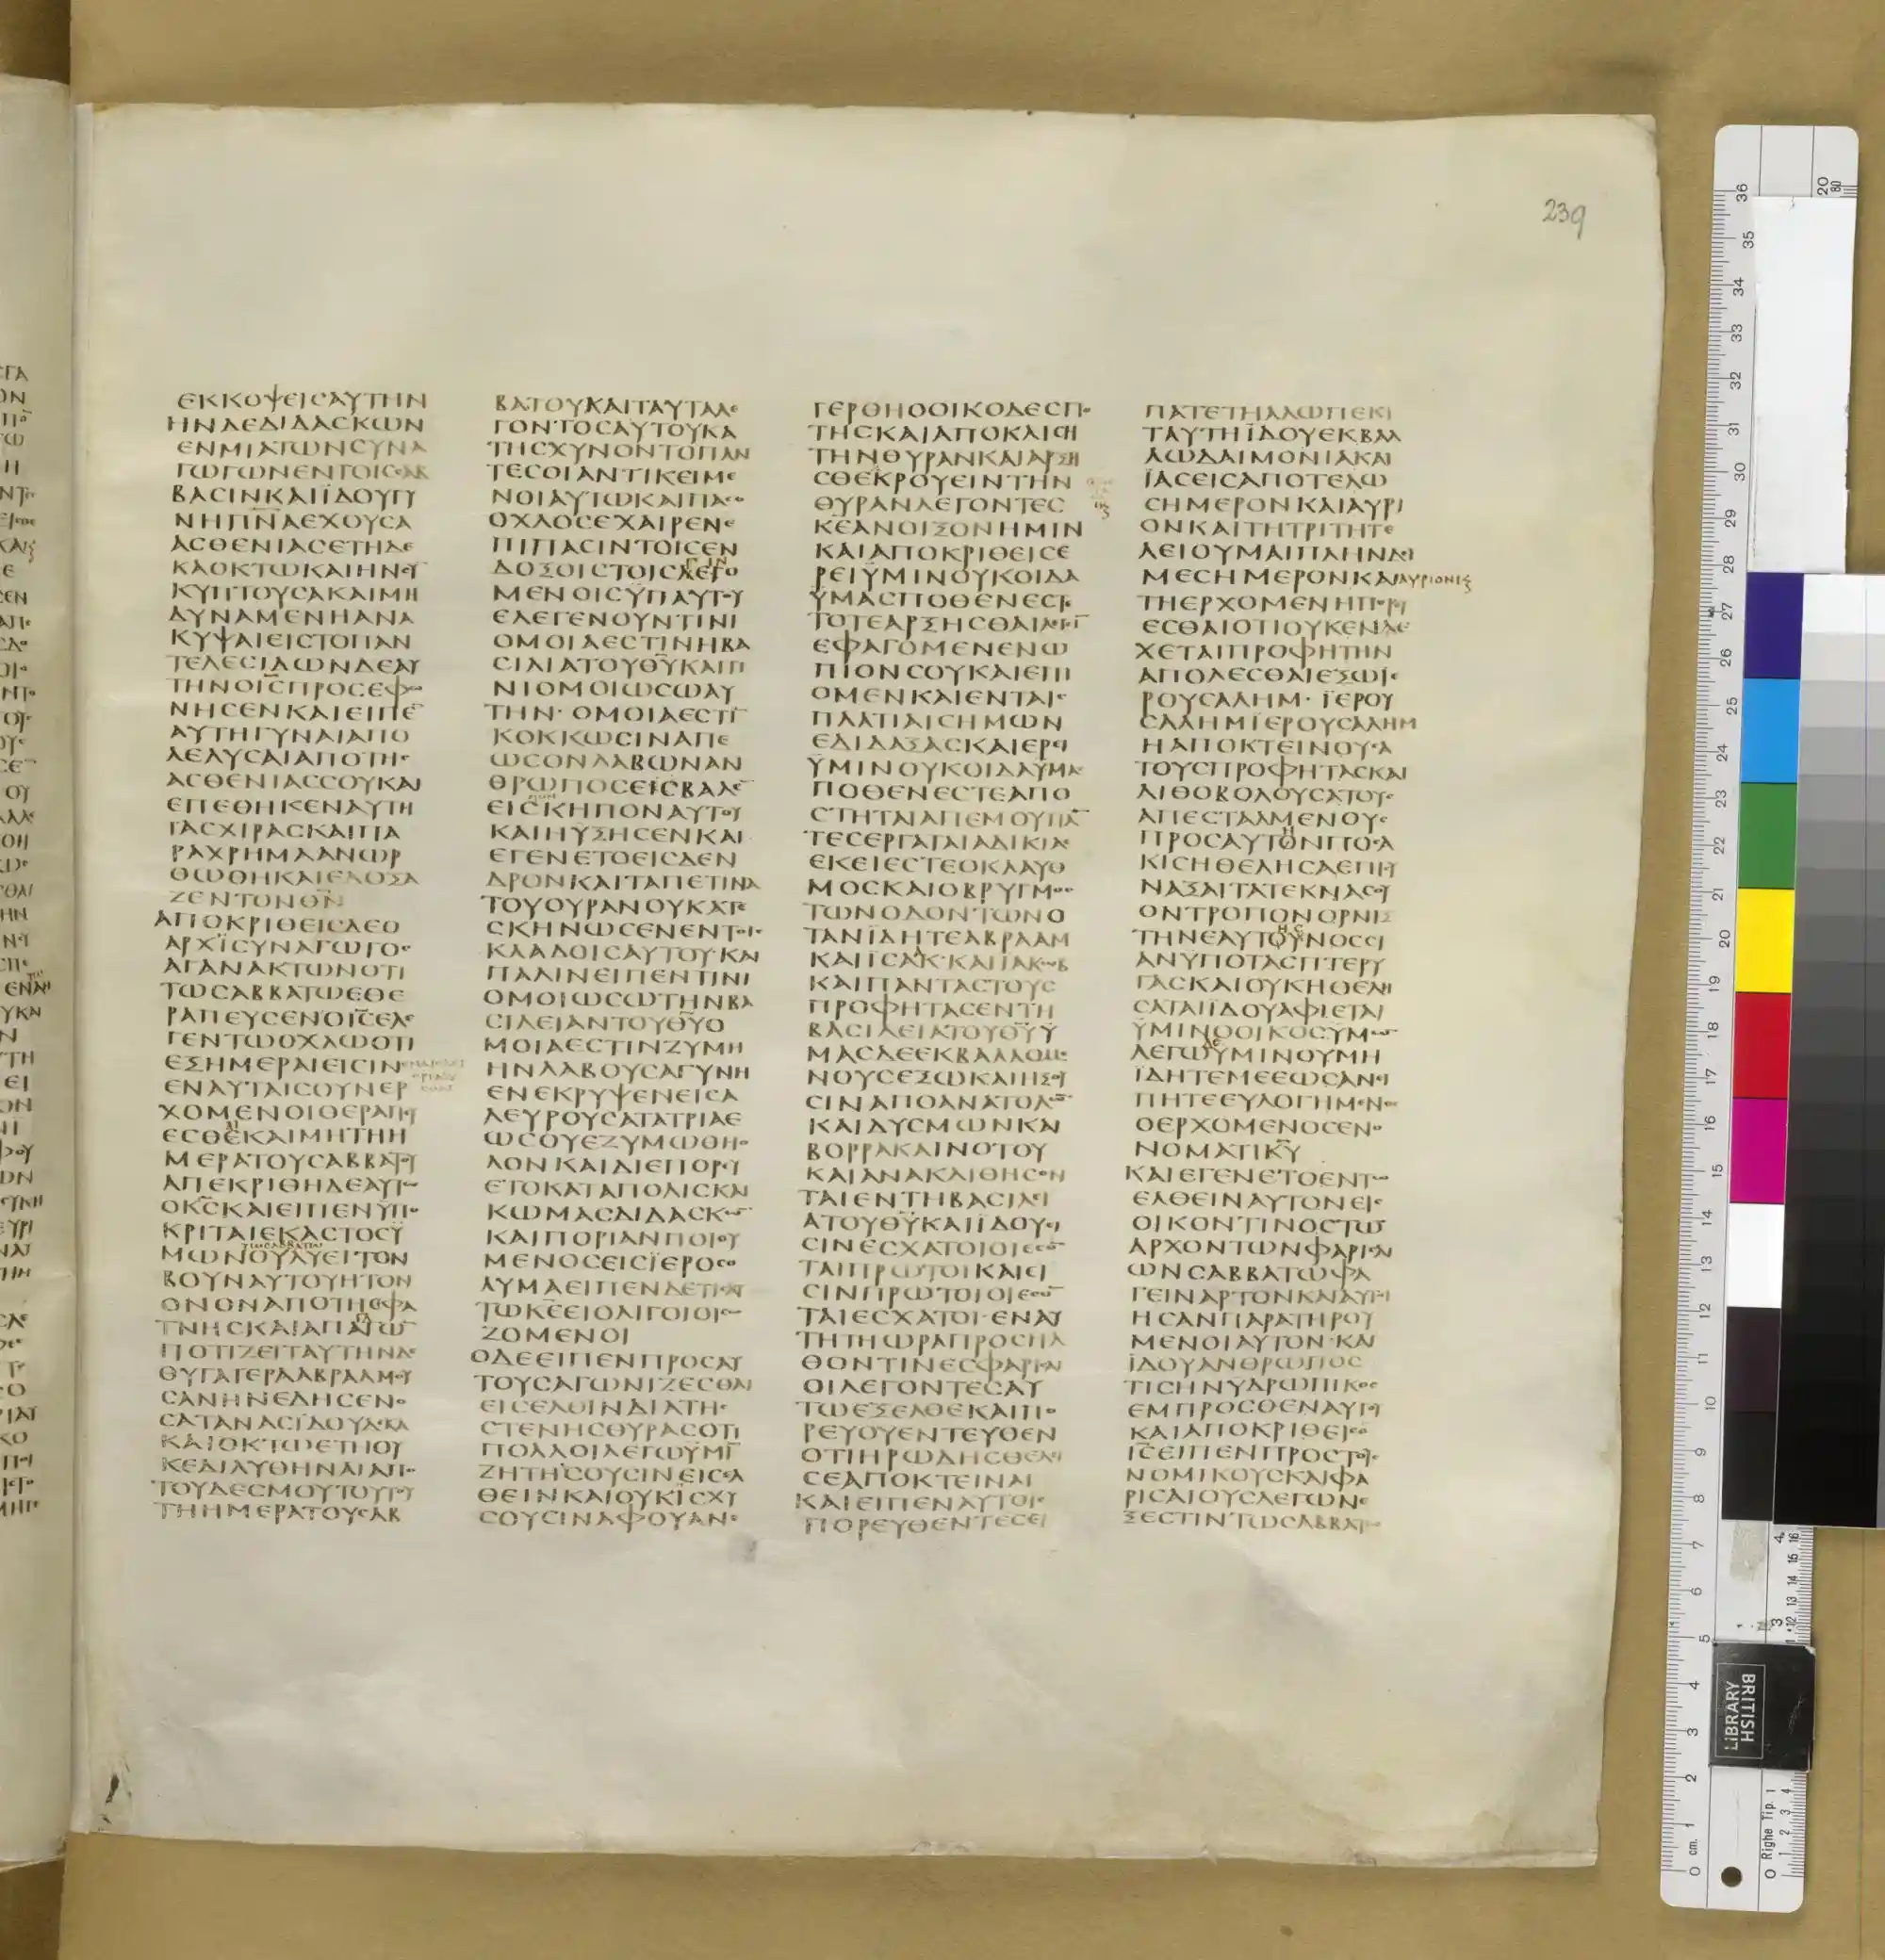 239
ΕΚΚΟΨΕΙCΑΥΤΗΝ
ΗΝΔΕΔΙΔΑCΚΩΝ
ΕΝΜΙΑΤΩΝCΥΝΑ
ΓΩΓΩΝΕΝΤΟΙCCΑΒ
ΒΑCΙΝΚΑΙΪΔΟΥΓΥ
ΝΗΠΝ̅ΑΕΧΟΥCΑ
ΑCΘΕΝΙΑCΕΤΗΔΕ
ΚΑΟΚΤΩΚΑΙΗΝCΥ
ΚΥΠΤΟΥCΑΚΑΙΜΗ
ΔΥΝΑΜΕΝΗΑΝΑ
ΚΥΨΑΙΕΙCΤΟΠΑΝ
ΤΕΛΕCΙΔΩΝΔΕΑΥ
ΤΗΝΟΙC̅ΠΡΟCΕΦΩ
ΝΗCΕΝΚΑΙΕΙΠΕ̅
ΑΥΤΗΓΥΝΑΙΑΠΟ
ΛΕΛΥCΑΙΑΠΟΤΗC
ΑCΘΕΝΙΑCCΟΥΚΑΙ
ΕΠΕΘΗΚΕΝΑΥΤΗ
ΤΑCΧΙΡΑCΚΑΙΠΑ
ΡΑΧΡΗΜΑΑΝΩΡ
ΘΩΘΗΚΑΙΕΔΟΞΑ
ΖΕΝΤΟΝΘΝ̅
ΑΠΟΚΡΙΘΕΙCΔΕΟ
ΑΡΧΪCΥΝΑΓΩΓΟC
ΑΓΑΝΑΚΤΩΝΟΤΙ
ΤΩCΑΒΒΑΤΩΕΘΕ
ΡΑΠΕΥCΕΝΟΙC̅ΕΛΕ
ΓΕΝΤΩΟΧΛΩΟΤΙ
ΕΞΗΜΕΡΑΙΕΙCΙΝ
ΕΝΑΥΤΑΙCΟΥΝΕΡ
ΧΟΜΕΝΟΙΘΕΡΑΠΕΥ
ΕCΘΕΚΑΙΜΗΤΗΗ
ΜΕΡΑΤΟΥCΑΒΒΑΤΟΥ
ΑΠΕΚΡΙΘΗΔΕΑΥΤΩ
ΟΚC̅ΚΑΙΕΙΠΕΝΥΠΟ
ΚΡΙΤΑΙΕΚΑCΤΟCΫ
ΜΩΝΟΥΛΥΕΙΤΟΝ
ΒΟΥΝΑΥΤΟΥΗΤΟΝ
ΟΝΟΝΑΠΟΤΗCΦΑ
ΤΝΗCΚΑΙΑΠΑΓΩ̅
ΠΟΤΙΖΕΙΤΑΥΤΗΝΔΕ
ΘΥΓΑΤΕΡΑΑΒΡΑΑΜΟΥ
CΑΝΗΝΕΔΗCΕΝΟ
CΑΤΑΝΑCΪΔΟΥΔΕΚΑ
ΚΑΙΟΚΤΩΕΤΗΟΥ
ΚΕΔΙΛΥΘΗΝΑΙΑΠΟ
ΤΟΥΔΕCΜΟΥΤΟΥΤΟΥ
ΤΗΗΜΕΡΑΤΟΥCΑΒ
ΒΑΤΟΥΚΑΙΤΑΥΤΑΛΕ
ΓΟΝΤΟCΑΥΤΟΥΚΑ
ΤΗCΧΥΝΟΝΤΟΠΑΝ
ΤΕCΟΙΑΝΤΙΚΕΙΜΕ
ΝΟΙΑΥΤΩΚΑΙΠΑCΟ
ΟΧΛΟCΕΧΑΙΡΕΝΕ
ΠΙΠΑCΙΝΤΟΙCΕΝ
ΔΟΞΟΙCΤΟΙCΛΕΓΟ
ΜΕΝΟΙCΫΠΑΥΤΟΥ
ΕΛΕΓΕΝΟΥΝΤΙΝΙ
ΟΜΟΙΑΕCΤΙΝΗΒΑ
CΙΛΙΑΤΟΥΘΥ̅ΚΑΙΤΙ
ΝΙΟΜΟΙΩCΩΑΥ
ΤΗΝ· ΟΜΟΙΑΕCΤΙ̅
ΚΟΚΚΩCΙΝΑΠΕ
ΩCΟΝΛΑΒΩΝΑΝ
ΘΡΩΠΟCΕΙCΒΑΛΕ̅
ΕΙCΚΗΠΟΝΑΥΤΟΥ
ΚΑΙΗΥΞΗCΕΝΚΑΙ
ΕΓΕΝΕΤΟΕΙCΔΕΝ
ΔΡΟΝΚΑΙΤΑΠΕΤΙΝΑ
ΤΟΥΟΥΡΑΝΟΥΚΑΤΕ
CΚΗΝΩCΕΝΕΝΤΟΙC
ΚΛΑΔΟΙCΑΥΤΟΥ·ΚΑΙ
ΠΑΛΙΝΕΙΠΕΝΤΙΝΙ
ΟΜΟΙΩCΩΤΗΝΒΑ
CΙΛΕΙΑΝΤΟΥΘΥ̅Ο
ΜΟΙΑΕCΤΙΝΖΥΜΗ
ΗΝΛΑΒΟΥCΑΓΥΝΗ
ΕΝΕΚΡΥΨΕΝΕΙCΑ
ΛΕΥΡΟΥCΑΤΑΤΡΙΑΕ
ΩCΟΥΕΖΥΜΩΘΗΟ
ΛΟΝΚΑΙΔΙΕΠΟΡΕΥ
ΕΤΟΚΑΤΑΠΟΛΙCΚΑΙ
ΚΩΜΑCΔΙΔΑCΚΩ̅
ΚΑΙΠΟΡΙΑΝΠΟΙΟΥ
ΜΕΝΟCΕΙCΪΕΡΟCΟ
ΛΥΜΑΕΙΠΕΝΔΕΤΙCΑΥ
ΤΩΚΕ̅ΕΙΟΛΙΓΟΙΟΙCΩ
ΖΟΜΕΝΟΙ
ΟΔΕΕΙΠΕΝΠΡΟCΑΥ
ΤΟΥCΑΓΩΝΙΖΕCΘΑΙ
ΕΙCΕΛΘΙΝΔΙΑΤΗC
CΤΕΝΗCΘΥΡΑCΟΤΙ
ΠΟΛΛΟΙΛΕΓΩΫΜΙ̅
ΖΗΤΗCΟΥCΙΝΕΙCΕΛ
ΘΕΙΝΚΑΙΟΥΚΪCΧΥ
CΟΥCΙΝΑΦΟΥΑΝΕ
ΓΕΡΘΗΟΟΙΚΟΔΕCΠΟ
ΤΗCΚΑΙΑΠΟΚΛΙCΗ
ΤΗΝΘΥΡΑΝΚΑΙΑΡΞΗ
CΘΕΚΡΟΥΕΙΝΤΗΝ
ΘΥΡΑΝΛΕΓΟΝΤΕC
ΚΕ̅ΑΝΟΙΞΟΝΗΜΙΝ
ΚΑΙΑΠΟΚΡΙΘΕΙCΕ
ΡΕΙΫΜΙΝΟΥΚΟΙΔΑ
ΫΜΑCΠΟΘΕΝΕCΤΕ
ΤΟΤΕΑΡΞΗCΘΑΙΛΕΓΙ̅
ΕΦΑΓΟΜΕΝΕΝΩ
ΠΙΟΝCΟΥΚΑΙΕΠΙ
ΟΜΕΝΚΑΙΕΝΤΑΙC
ΠΛΑΤΙΑΙCΗΜΩΝ
ΕΔΙΔΑΞΑCΚΑΙΕΡΕΙ
ΫΜΙΝΟΥΚΟΙΔΑΥΜΑC
ΠΟΘΕΝΕCΤΕΑΠΟ
CΤΗΤΑΙΑΠΕΜΟΥΠΑ̅
ΤΕCΕΡΓΑΤΑΙΑΔΙΚΙΑC
ΕΚΕΙΕCΤΕΟΚΛΑΥΘ
ΜΟCΚΑΙΟΒΡΥΓΜΟC
ΤΩΝΟΔΟΝΤΩΝΟ
ΤΑΝΪΔΗΤΕΑΒΡΑΑΜ
ΚΑΙΪCΑΚ·ΚΑΙΪΑΚΩΒ
ΚΑΙΠΑΝΤΑCΤΟΥC
ΠΡΟΦΗΤΑCΕΝΤΗ
ΒΑCΙΛΕΙΑΤΟΥΘΥ̅Ϋ
ΜΑCΔΕΕΚΒΑΛΛΟΜΕ
ΝΟΥCΕΞΩΚΑΙΗΞΟΥ
CΙΝΑΠΟΑΝΑΤΟΛΩ̅
ΚΑΙΔΥCΜΩΝΚΑΙ
ΒΟΡΡΑΚΑΙΝΟΤΟΥ
ΚΑΙΑΝΑΚΛΙΘΗCΟΝ
ΤΑΙΕΝΤΗΒΑCΙΛΕΙ
ΑΤΟΥΘΥ̅ΚΑΙΪΔΟΥΕΙ
CΙΝΕCΧΑΤΟΙΟΙΕCΟ̅
ΤΑΙΠΡΩΤΟΙΚΑΙΕΙ
CΙΝΠΡΩΤΟΙΟΙΕCΟ̅
ΤΑΙΕCΧΑΤΟΙ·ΕΝΑΥ
ΤΗΤΗΩΡΑΠΡΟCΗΛ
ΘΟΝΤΙΝΕCΦΑΡΙCΑΙ
ΟΙΛΕΓΟΝΤΕCΑΥ
ΤΩΕΞΕΛΘΕΚΑΙΠΟ
ΡΕΥΟΥΕΝΤΕΥΘΕΝ
ΟΤΙΗΡΩΔΗCΘΕΛΕΙ
CΕΑΠΟΚΤΕΙΝΑΙ
ΚΑΙΕΙΠΕΝΑΥΤΟΙC
ΠΟΡΕΥΘΕΝΤΕCΕΙ
ΠΑΤΕΤΗΑΛΩΠΕΚΙ
ΤΑΥΤΗΪΔΟΥΕΚΒΑΛ
ΛΩΔΑΙΜΟΝΙΑΚΑΙ
ΪΑCΕΙCΑΠΟΤΕΛΩ
CΗΜΕΡΟΝΚΑΙΑΥΡΙ
ΟΝΚΑΙΤΗΤΡΙΤΗΤΕ
ΛΕΙΟΥΜΑΙΠΛΗΝΔΕΙ
ΜΕCΗΜΕΡΟΝΚΑΙΑΥΡΙΟΝΚϚ
ΤΗΕΡΧΟΜΕΝΗΠΟΡΕΥ
ΕCΘΑΙΟΤΙΟΥΚΕΝΔΕ
ΧΕΤΑΙΠΡΟΦΗΤΗΝ
ΑΠΟΛΕCΘΑΙΕΞΩΪΕ
ΡΟΥCΑΛΗΜ· ΪΕΡΟΥ
CΑΛΗΜΪΕΡΟΥCΑΛΗΜ
ΗΑΠΟΚΤΕΙΝΟΥCΑ
ΤΟΥCΠΡΟΦΗΤΑCΚΑΙ
ΛΙΘΟΒΟΛΟΥCΑΤΟΥC
ΑΠΕCΤΑΛΜΕΝΟΥC
ΠΡΟCΑΥΤΟΝΠΟCΑ
ΚΙCΗΘΕΛΗCΑΕΠΙCΥ
ΝΑΞΑΙΤΑΤΕΚΝΑCΟΥ
ΟΝΤΡΟΠΟΝΟΡΝΙΞ
ΤΗΝΕΑΥΤΟΥΝΟCCΙ
ΑΝΥΠΟΤΑCΠΤΕΡΥ
ΓΑCΚΑΙΟΥΚΗΘΕΛΗ
CΑΤΑΙΪΔΟΥΑΦΙΕΤΑΙ
ΫΜΙΝΟΟΙΚΟCΫΜΩ̅
ΛΕΓΩΥΜΙΝΟΥΜΗ
ΪΔΗΤΕΜΕΕΩCΑΝΕΙ
ΠΗΤΕΕΥΛΟΓΗΜΕΝΟC
ΟΕΡΧΟΜΕΝΟCΕΝΟ
ΝΟΜΑΤΙΚΥ̅
ΚΑΙΕΓΕΝΕΤΟΕΝΤΩ
ΕΛΘΕΙΝΑΥΤΟΝΕΙC
ΟΙΚΟΝΤΙΝΟCΤΩ̅
ΑΡΧΟΝΤΩΝΦΑΡΙCΑΙ
ΩΝCΑΒΒΑΤΩΦΑ
ΓΕΙΝΑΡΤΟΝΚΑΙΑΥΤΟΙ
ΗCΑΝΠΑΡΑΤΗΡΟΥ
ΜΕΝΟΙΑΥΤΟΝ·ΚΑΙ
ΪΔΟΥΑΝΘΡΩΠΟC
ΤΙCΗΝΥΔΡΩΠΙΚΟC
ΕΜΠΡΟCΘΕΝΑΥΤΟΥ
ΚΑΙΑΠΟΚΡΙΘΕΙCΟ
ΙC̅ΕΙΠΕΝΠΡΟCΤΟΥC
ΝΟΜΙΚΟΥCΚΑΙΦΑ
ΡΙCΑΙΟΥCΛΕΓΩΝΕ
ΞΕCΤΙΝΤΩCΑΒΒΑΤΩ
BRITISH
LIBRARY